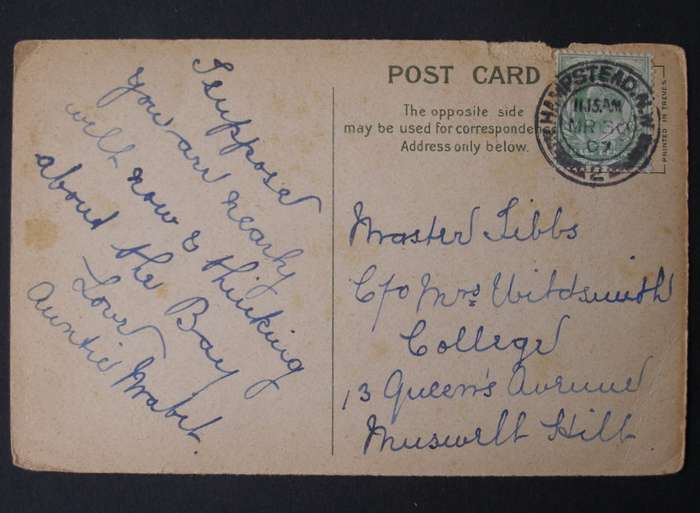 I suppose
you are nearly
well now & thinking
about the Bay
Love
Auntie Mabel.
POST CARD
The opposite side
may be used for correspondence
Address only below.
HAMPSTEAD. N.W.
11.15. AM
MR 30
07
2
PRINTED IN TREVES
Master Libbs
C/o Mrs
College
13 Queen's Avenue
Muswell Hill